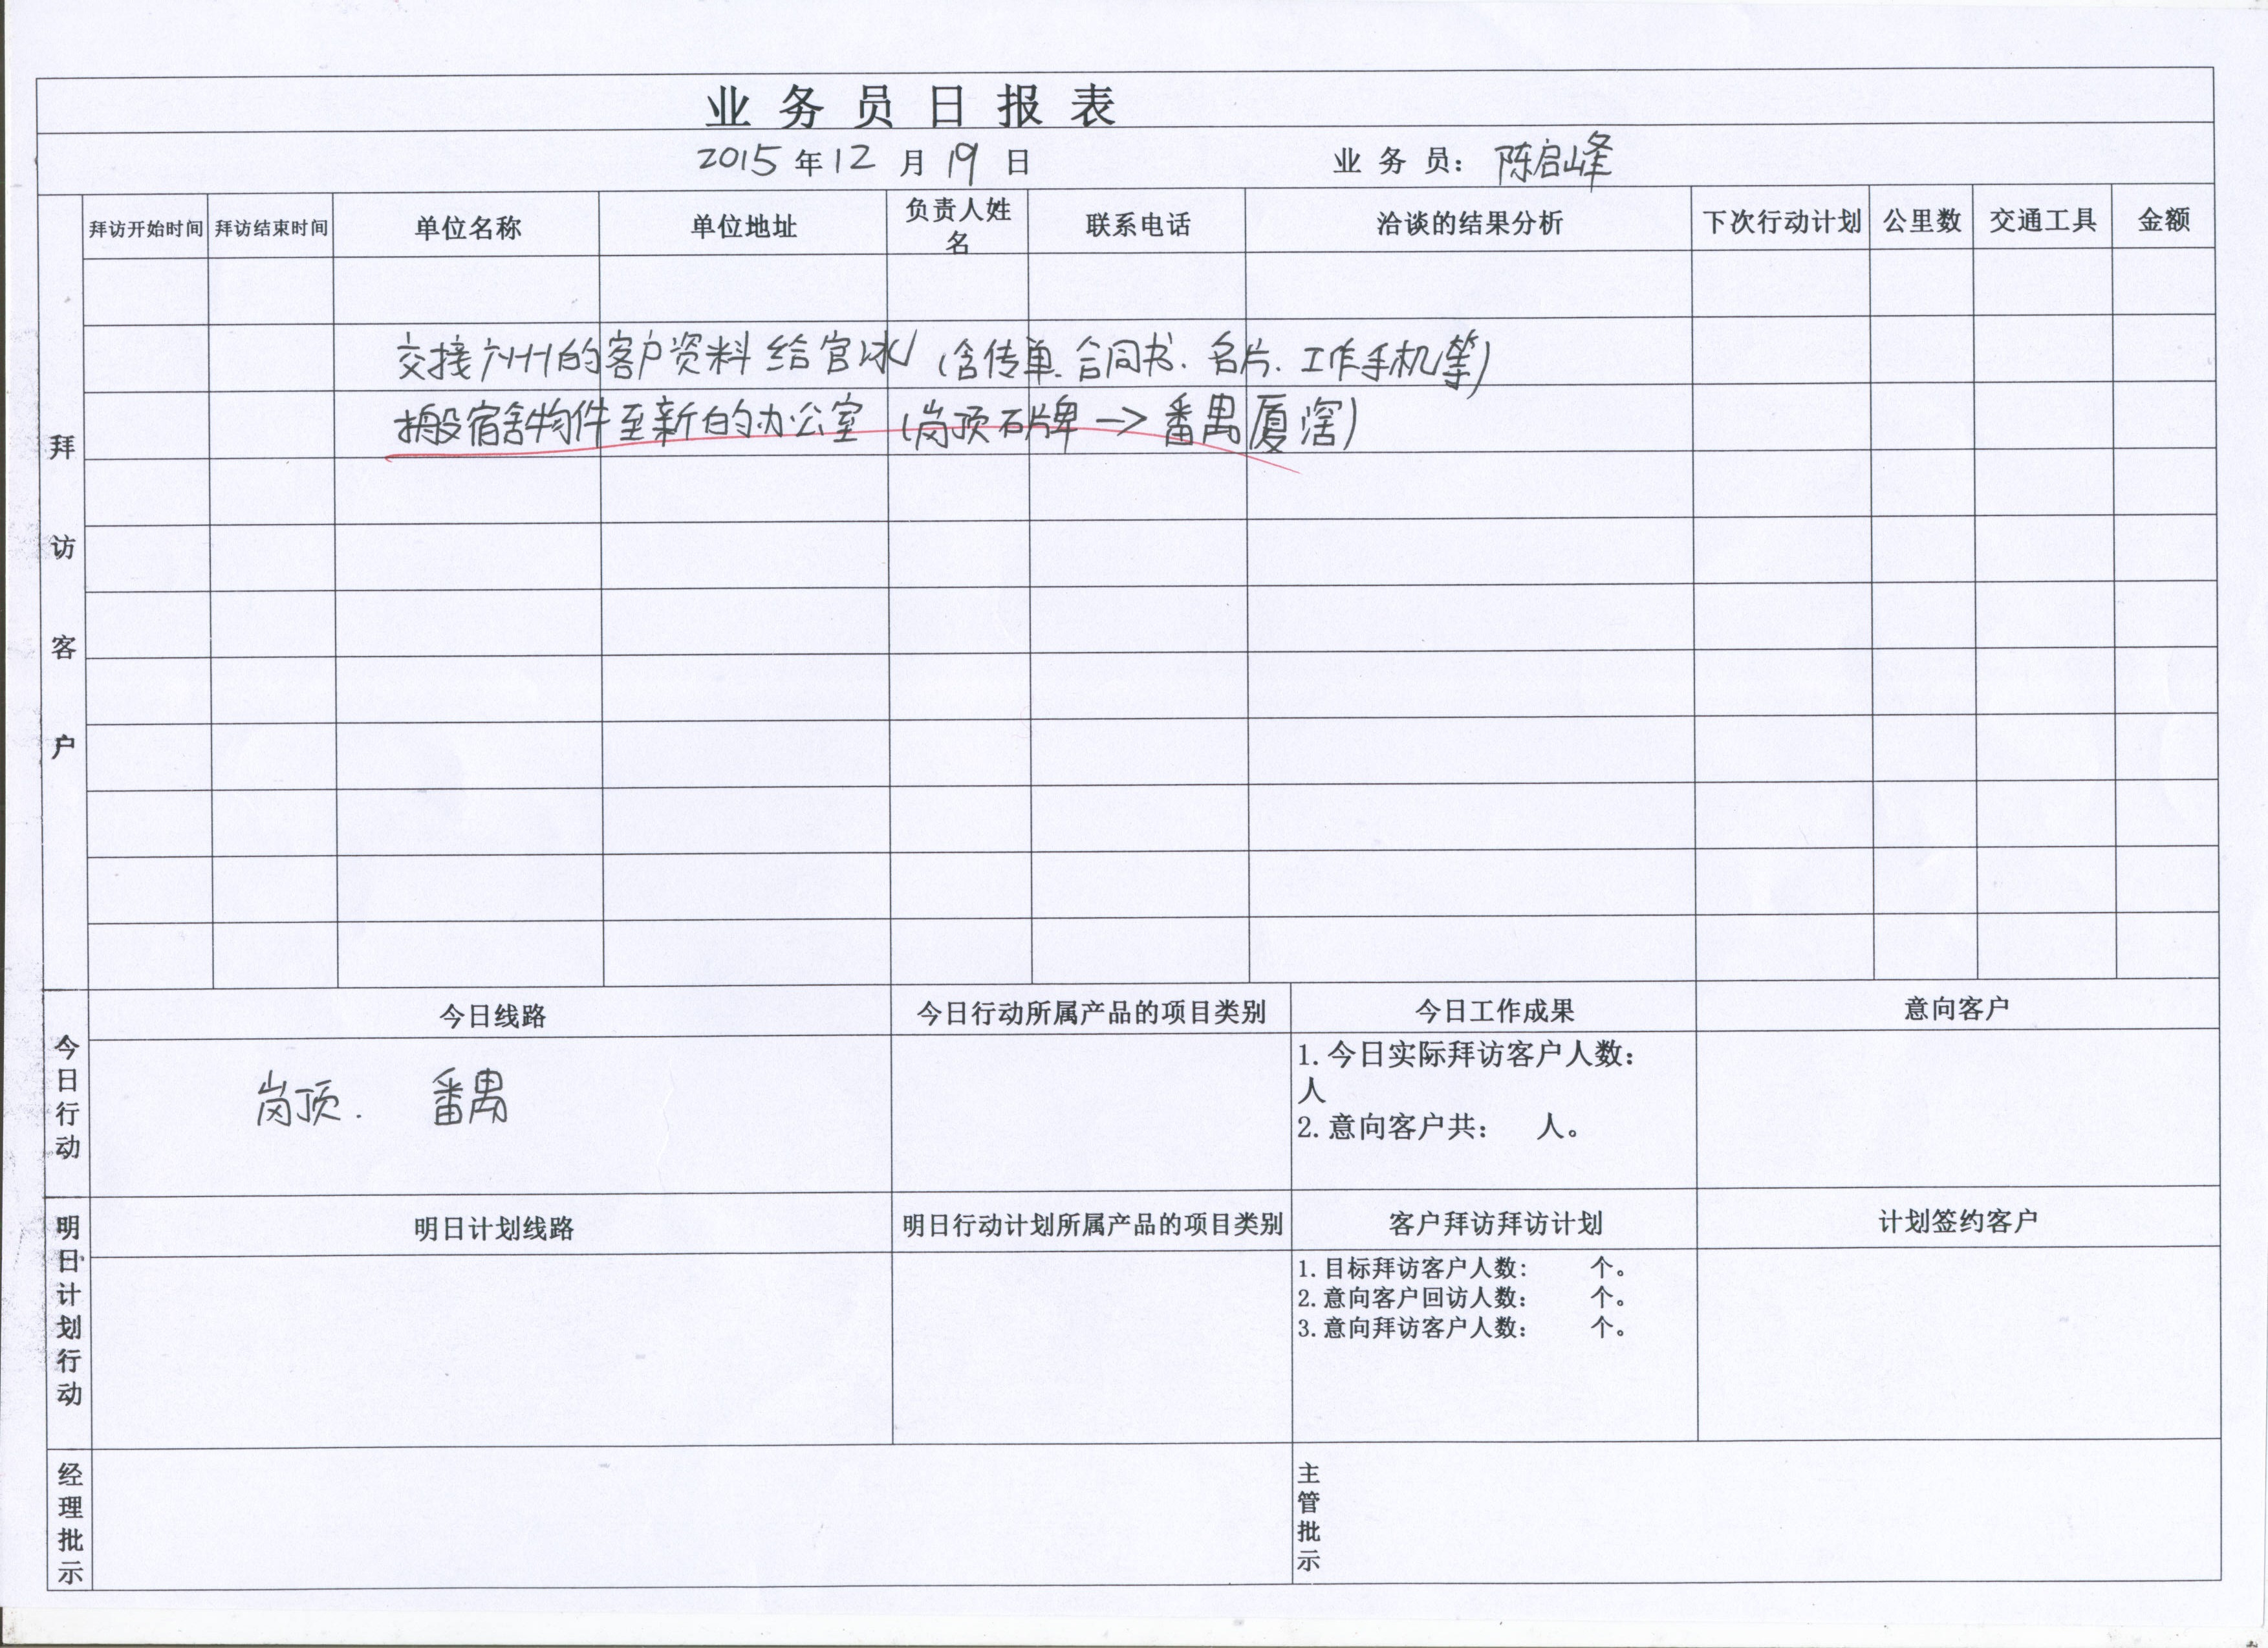 业务员日报表
2015 年 12 月 19 日 业务员: 陈启峰
拜访客户
拜访开始时间 拜访结束时间 单位名称 单位地址 负责人姓名 联系电话 洽谈的结果分析 下次行动计划 公里数 交通工具 金额
交接广州的客户资料给官冰（含传单、合同书、名片、工作手机等）
搬宿舍物件至新的办公室（岗顶石牌 -> 番禺厦滘）
今日行动
今日线路 今日行动所属产品的项目类别 今日工作成果 意向客户
岗顶. 番禺
1.今日实际拜访客户人数:
人
2.意向客户共: 人。
明日计划行动
明日计划线路 明日行动计划所属产品的项目类别 客户拜访拜访计划 计划签约客户
1.目标拜访客户人数: 个。
2.意向客户回访人数: 个。
3.意向拜访客户人数: 个。
经理批示
主管批示